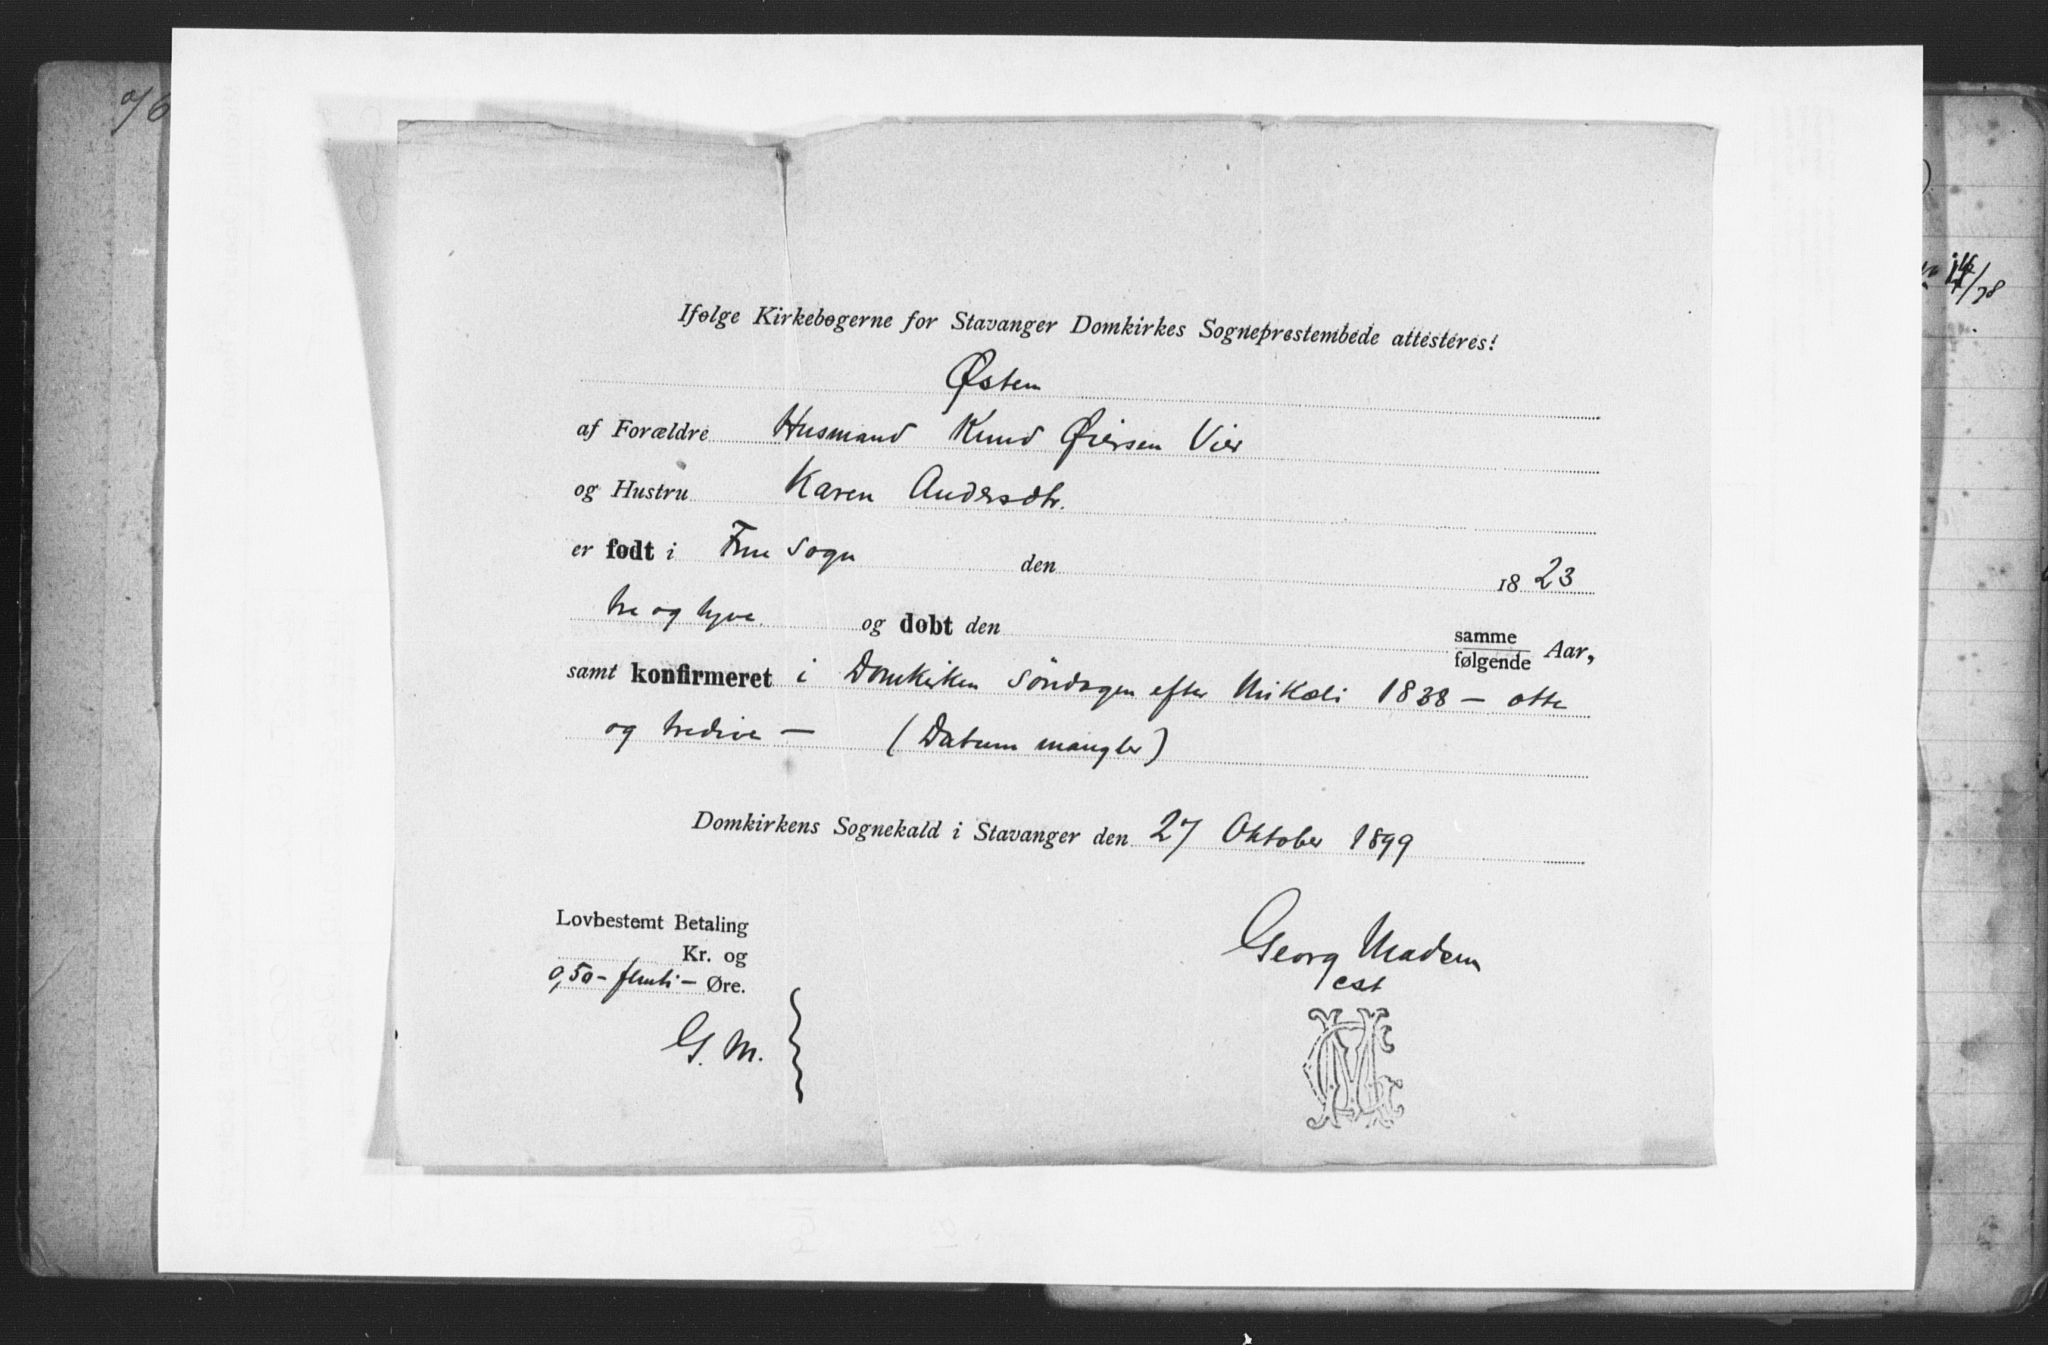 Ifølge Kirkebøgerne for Stavanger Domkirkes Sogneprestembede attesteres:
Østen
af Forældre Husmand Knud Øiersen Vier
og Hustru Karen Andersdtr.
er født i Frue Sogn den 1823
tre og tyve. og døbt den samme følgende Aar,
samt konfirmeret i Domkirken Søndagen efter Mikæli 1838 — otte
og tredive — (Datum mangler)
Domkirkens Sognekald i Stavanger den 27 Oktober 1899
Lovbestemt Betaling
Kr. og
0,50 - femti - Øre.
G. M.
Georg Madsen
cst